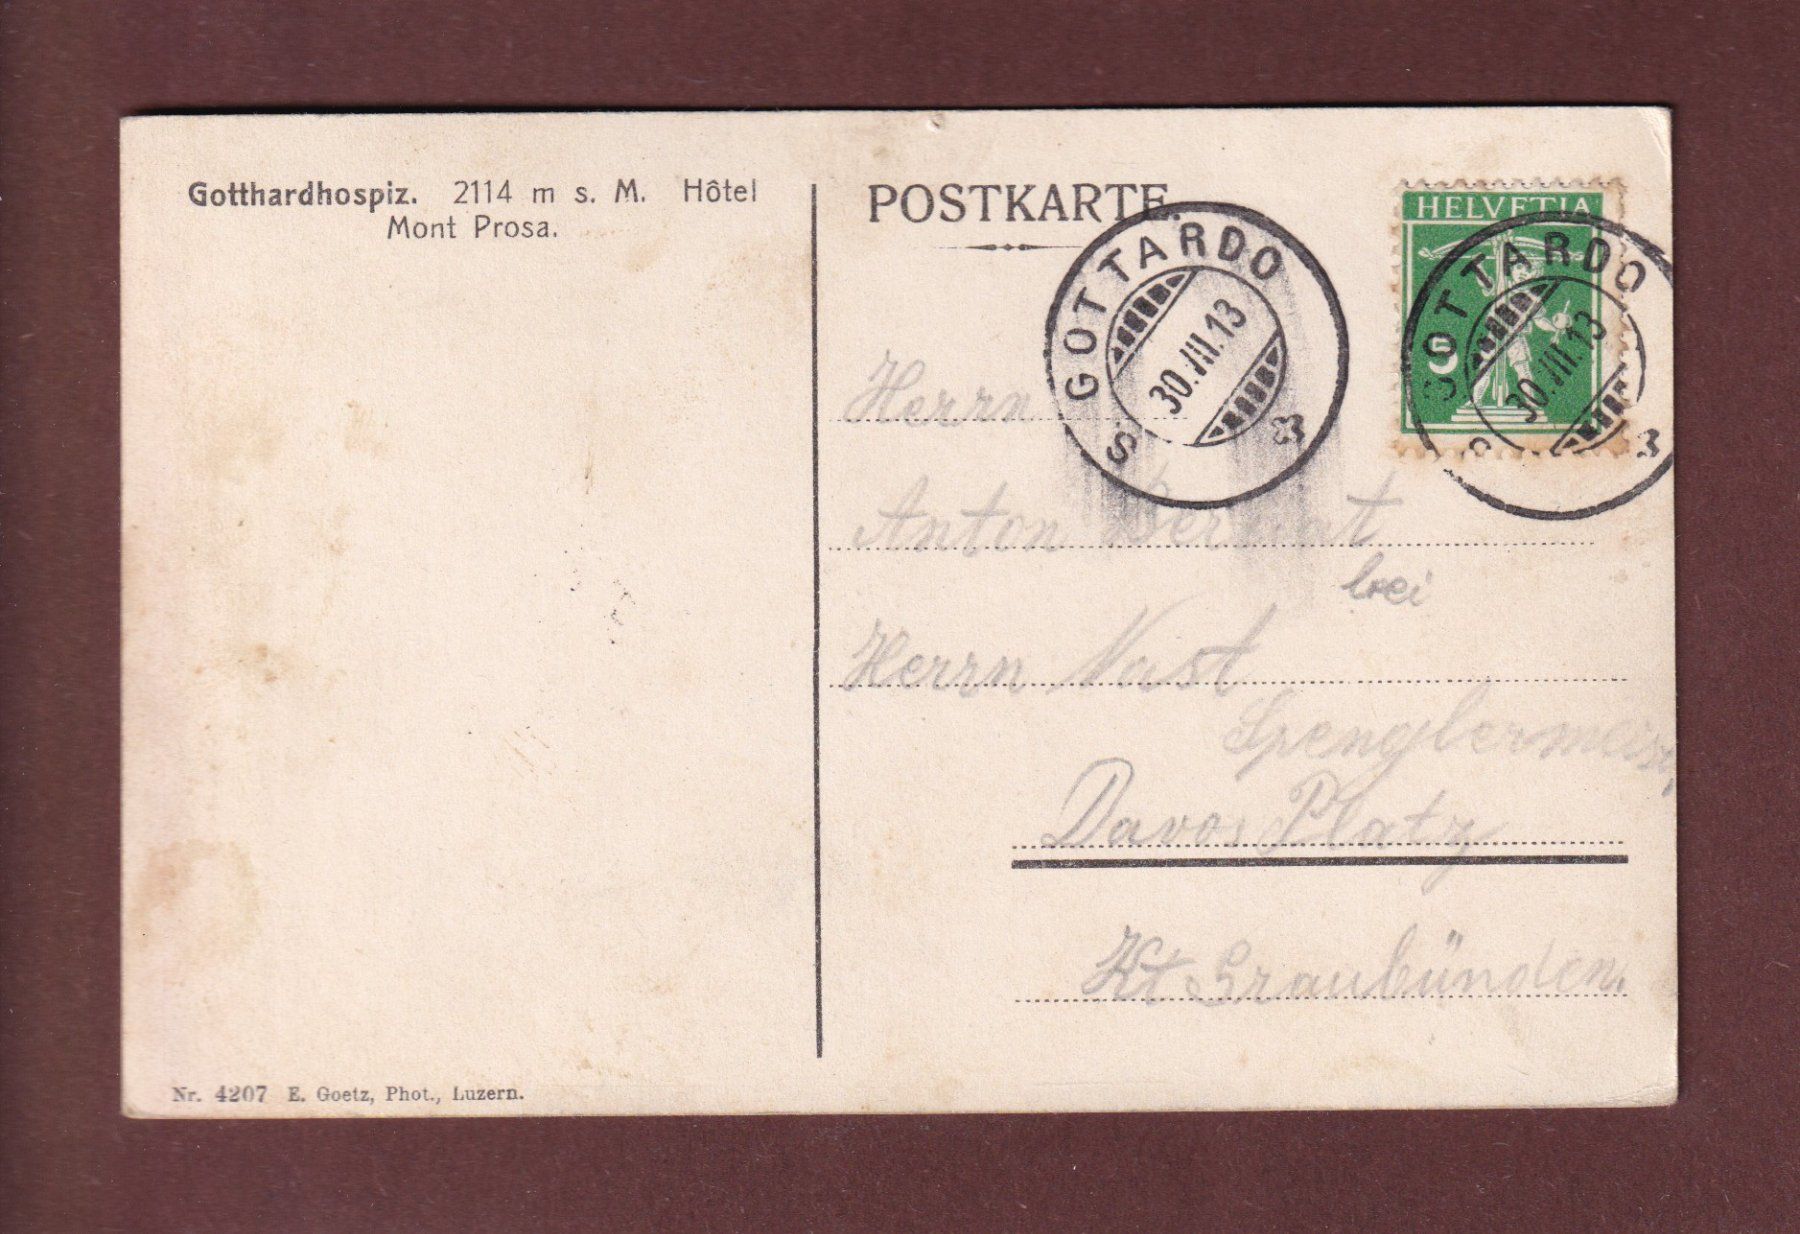 Gotthardhospiz. 2114 m s. M. Hôtel
Mont Prosa.
POSTKARTE.
HELVETIA
5
S. GOTTARDO
30.III.13
S. GOTTARDO
30.III.13
Herrn
Anton
bei
Herrn Nast
Spenglermeist,
Davos Platz
Kt Graubünden.
Nr. 4207 E. Goetz, Phot., Luzern.